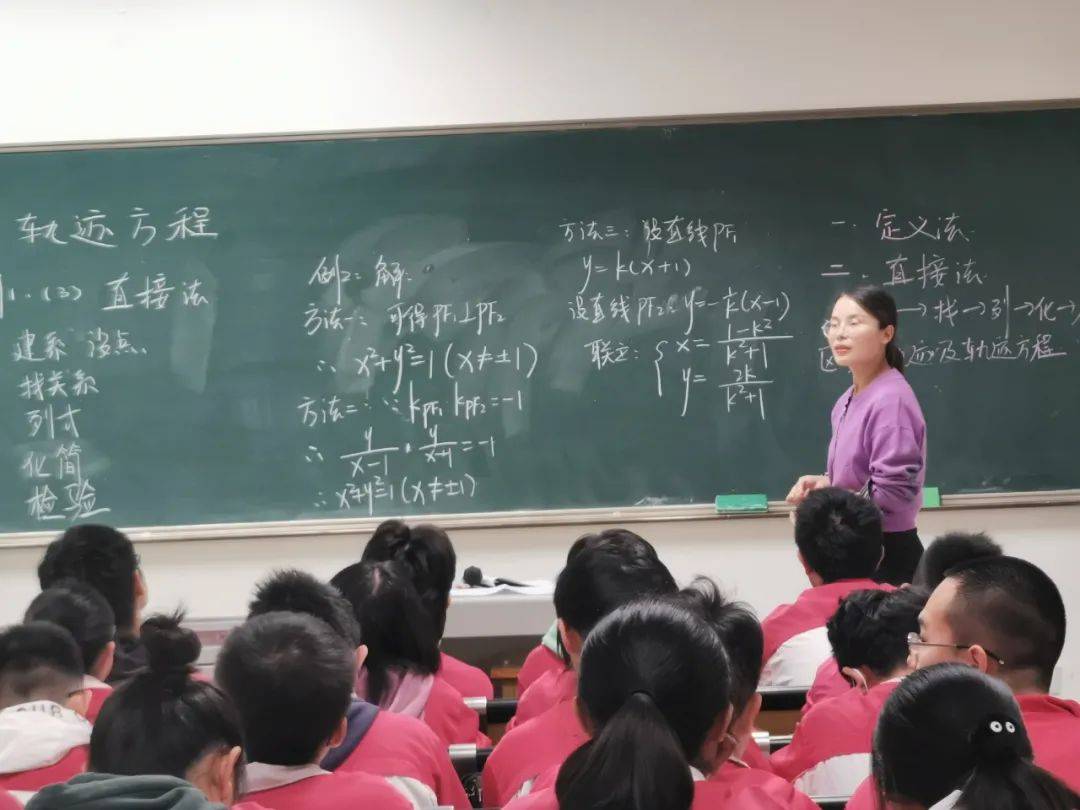 轨迹方程
1.(3) 直接法
建系 设点
找关系
列式
化简
检验
例2:解:
方法一:可得PF₁⊥PF₂
∴ x²+y²=1 (x≠±1)
方法二:∵ kPF₁·kPF₂=-1
∴ y/(x-1) · y/(x+1) = -1
∴ x²+y²=1 (x≠±1)
方法三:设直线PF₁
y=k(x+1)
设直线PF₂:y=-1/k(x-1)
联立:{ x=(1-k²)/(k²+1)
y=2k/(k²+1)
一.定义法
二.直接法
→找→列→化→
区 迹及轨迹方程